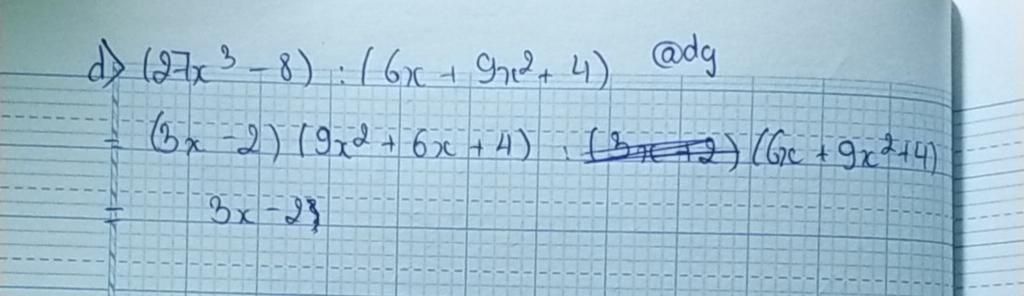 d) (27x³ - 8) : (6x + 9x² + 4) @dg
= (3x - 2) (9x² + 6x + 4) : (6x + 9x² + 4)
= 3x - 2